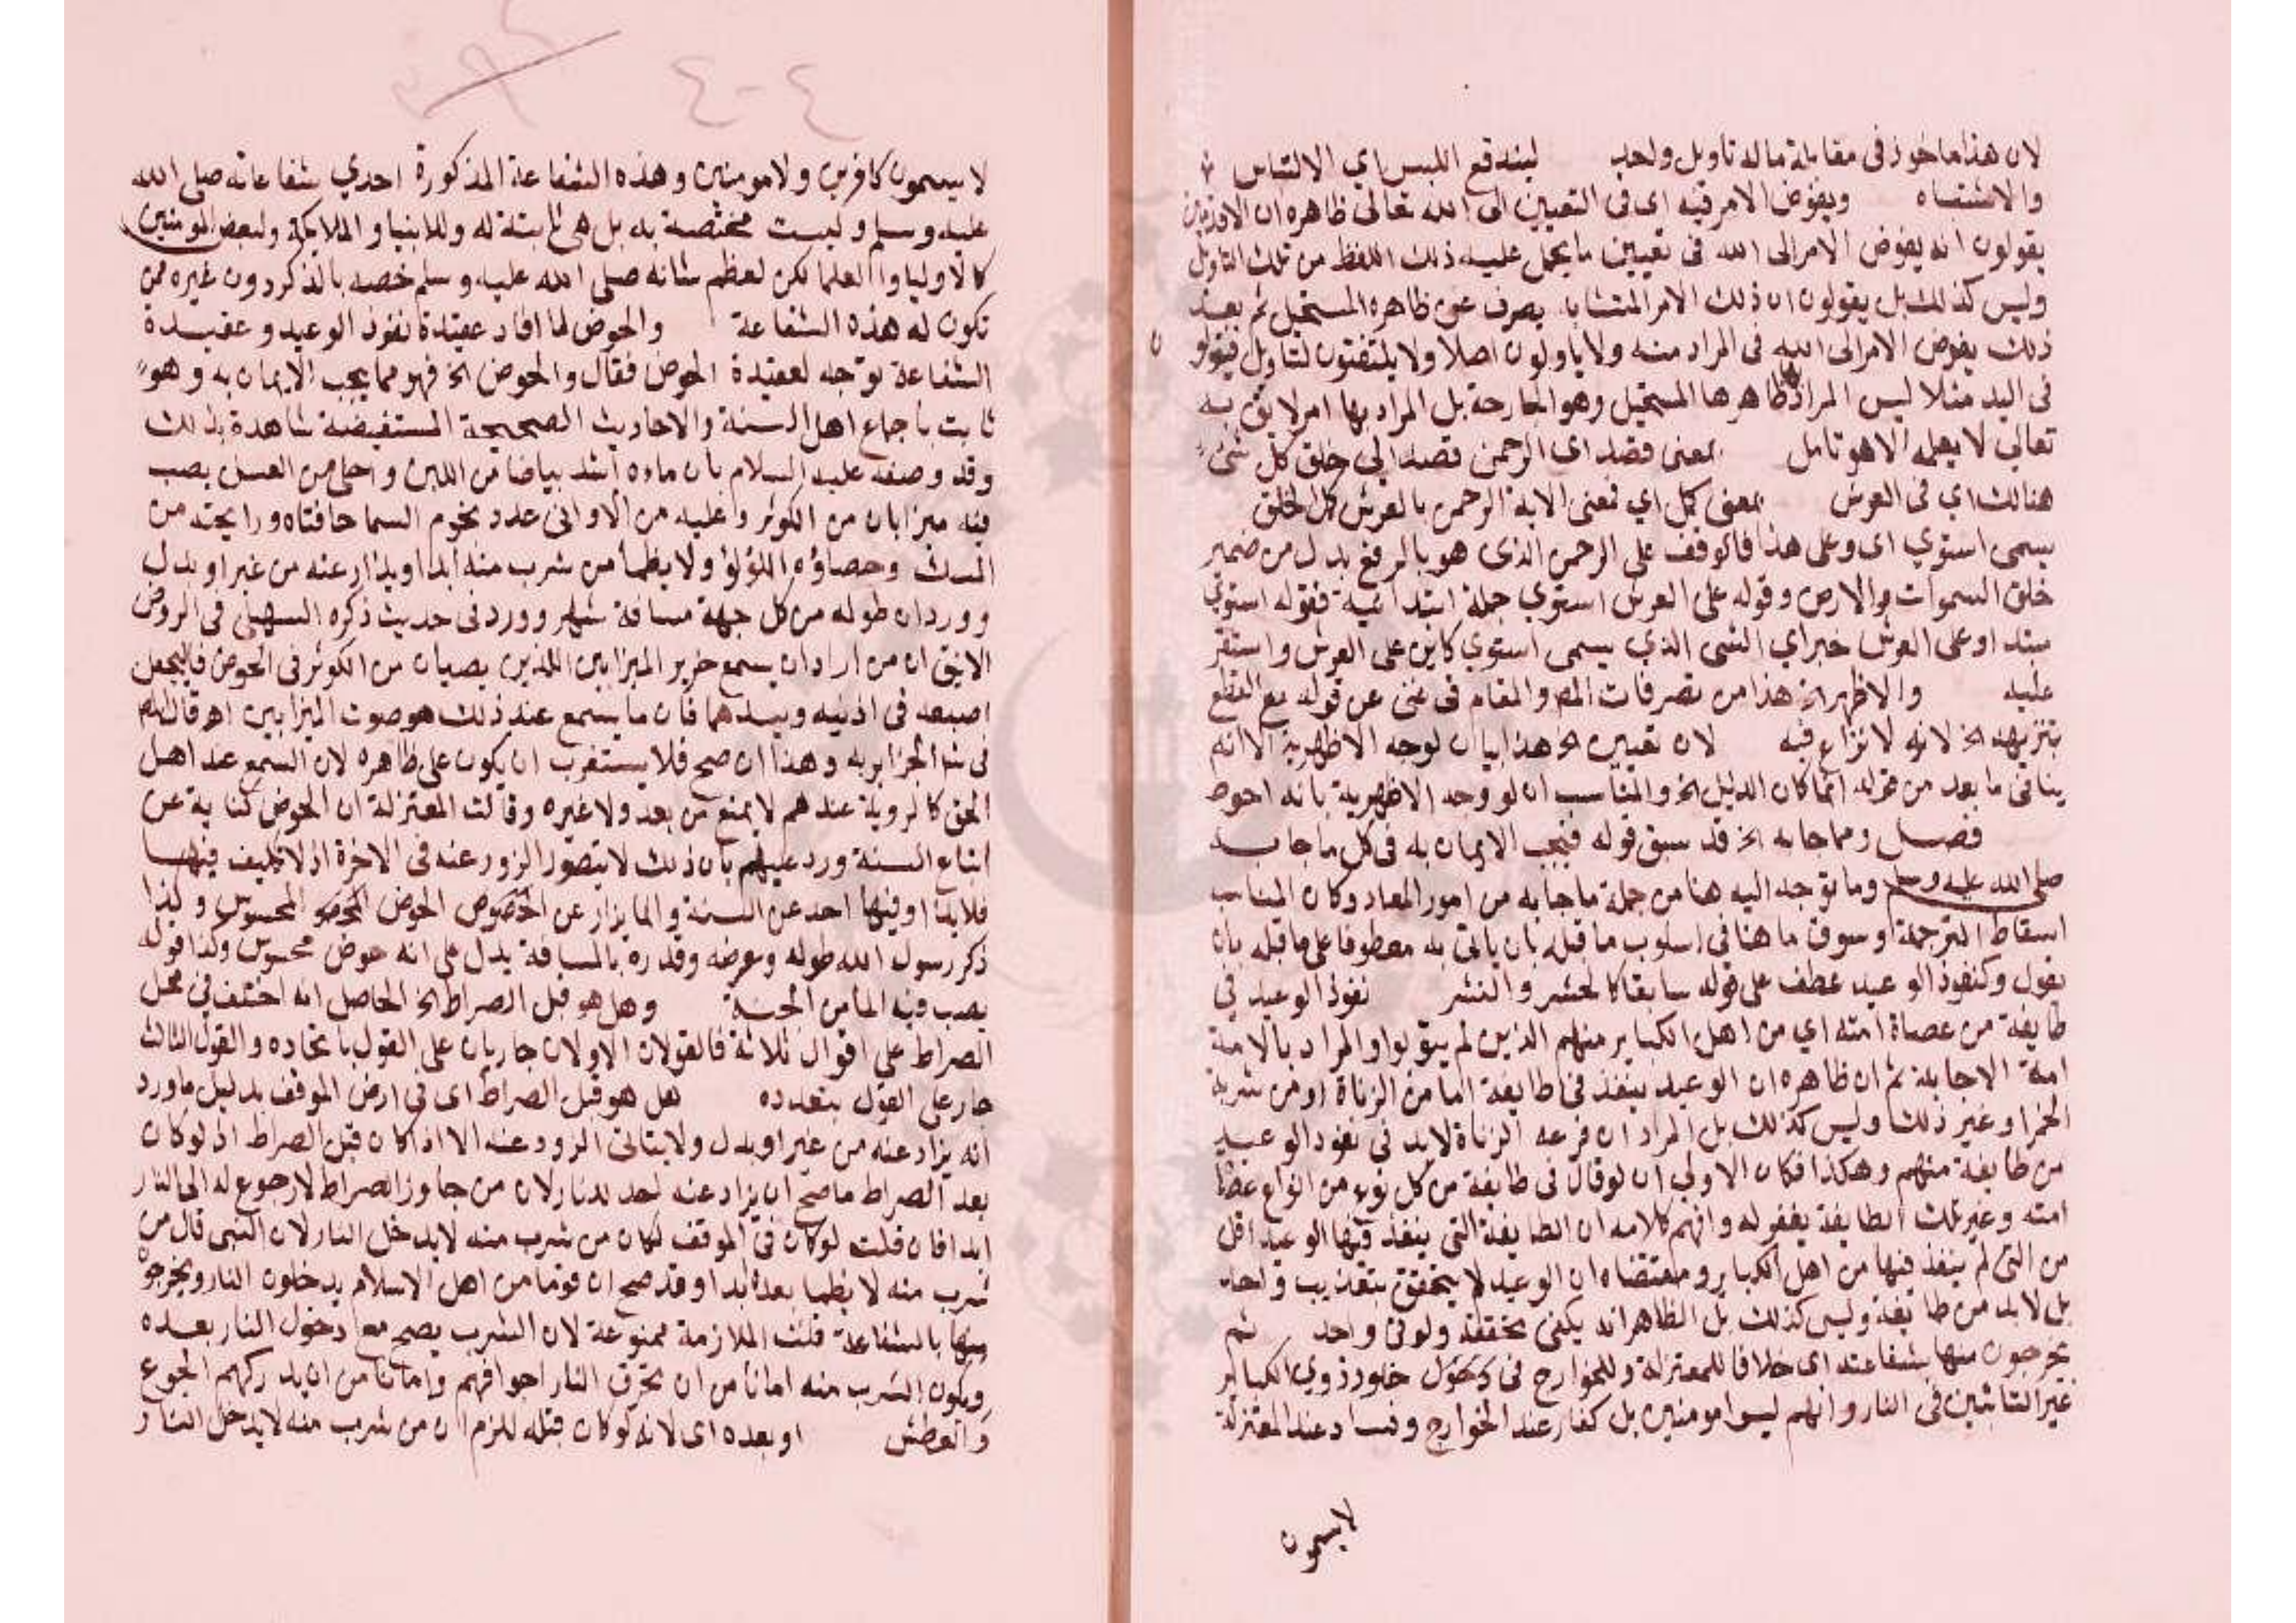 لان هذا ماخوذ في مقابلة ما له تاويل واحد ليندفع اللبس اي الالتباس
والاشتباه ويفوض الامر فيه اى فى التعيين الى الله تعالى ظاهره ان الاقدمين
يقولون انه يفوض الامر الى الله فى تعيين ما يحمل عليه ذلك اللفظ من تلك التاويل
وليس كذلك بل يقولون ان ذلك الامر المتشابه يصرف عن ظاهره المستحيل ثم بعد
ذلك يفوض الامر الى الله فى المراد منه ولا ياولون اصلا ولا يلتفتون لتاويل فيقولو
ن
فى اليد مثلا ليس المراد ظاهرها المستحيل وهو الجارحة بل المراد بها امر لايق به
تعالى لا يعلمه الا هو تامل بمعنى قصد اى الرحمن قصد الى خلق كل شئ
هنالك اي فى العرش بمعنى كمل اي فمعنى الاية الرحمن بالعرش كمل الخلق
يسمى استوي اى وعلى هذا فالوقف على الرحمن الذى هو بالرفع بدل من ضمير
خلق السموات والارض وقوله على العرش استوي جملة ابتدائية فقوله استوي
مبتد او على العرش خبر اي الشى الذي يسمى استوي كاين على العرش واستقر
عليه والاظهر الخ هذا من تصرفات المص والمقام فى غنى عن قوله مع القطع
بتنزيهه الخ لانه لا نزاع فيه لان تعيين الخ هذا بيان لوجه الاظهرية الا انه
ينافى ما بعد من قوله انما كان الدليل الخ والمناسب ان لو وجه الاظهرية بانه احوط
فصل ومما جا به الخ قد سبق قوله فيجب الايمان به فى كل ما جا به
صلى الله عليه وسلم وما توجه اليه هنا من جملة ما جا به من امور المعاد وكان المناسب
اسقاط الترجمة او سوق ما هنا فى اسلوب ما قبله بان ياتى به معطوفا على ما قبله بان
يقول وكنفوذ الوعيد عطف على قوله سابقا كالحشر والنشر نفوذ الوعيد في
طايفة من عصاة امته اي من اهل الكباير منهم الذين لم يتوبوا والمراد بالامة
امة الاجابة ثم ان ظاهره ان الوعيد ينفذ فى طايفة اما من الزناة او من شربة
الخمر او غير ذلك وليس كذلك بل المراد ان فرعه الزناة لابد فى نفوذ الوعيد
من طايفة منهم وهكذا فكان الاولى ان لو قال فى طايفة من كل نوع من انواع عصاة
امته وغير تلك الطايفة يغفر له وافهم كلامه ان الطايفة التى ينفذ فيها الوعيد اقل
من التى لم ينفذ فيها من اهل الكباير ومقتضاه ان الوعيد لا يتحقق بتعذيب واحد
بل لابد من طايفة وليس كذلك بل الظاهر انه يكفى تحققه ولو فى واحد ثم
يخرجون منها بشفاعته اى خلافا للمعتزلة وللخوارج فى دخول خلود ذوي الكباير
غير التائبين فى النار وانهم ليسوا مومنين بل كفار عند الخوارج وفساد عند المعتزلة
لا يسمون
لا يسمون كافرين ولا مومنين وهذه الشفاعة المذكورة احدي شفاعاته صلى الله
عليه وسلم وليست مختصة به بل هى ثابتة له وللانبيا والملايكة ولبعض المومنين
كالاوليا والعلما لكن لعظم شانه صلى الله عليه وسلم خصه بالذكر دون غيره ممن
تكون له هذه الشفاعة والحوض لما افاد عقيدة نفوذ الوعيد وعقيدة
الشفاعة توجه لعقيدة الحوض فقال والحوض الخ فهو مما يجب الايمان به وهو
ثابت باجماع اهل السنة والاحاديث الصحيحة المستفيضة شاهدة بذلك
وقد وصفه عليه السلام بان ماءه اشد بياضا من اللبن واحلى من العسل يصب
فيه ميزابان من الكوثر وعليه من الاوانى عدد نجوم السما حافتاه ورايحته من
المسك وحصاؤه اللؤلؤ ولا يظمأ من شرب منه ابدا ويذاد عنه من غير او بدل
وورد ان طوله من كل جهة مسافة شهر وورد فى حديث ذكره السهيلى فى الروض
الانيق ان من اراد ان يسمع خرير الميزابين اللذين يصبان من الكوثر فى الحوض فاليجعل
اصبعه فى اذنيه ويسدهما فان ما يسمع عند ذلك هو صوت الميزابين اهـ قال المص
فى شرا الجزايريه وهذا ان صح فلا يستغرب ان يكون على ظاهره لان السمع عند اهل
الحق كالروية عندهم لا يمنع من بعد ولا غيره وقالت المعتزلة ان الحوض كناية عن
اتباع السنة ورد عليهم بان ذلك لا يتصور الزود عنه فى الاخرة اذ لا تكليف فيها
فلا يذاد فيها احد عن السنة وانما يزاد عن الحوض المحسوس ولذا
ذكر رسول الله طوله وعرضه وقدره بالمسافة يدل على انه حوض محسوس وكذا قوله
يصب فيه الما من الجنة وهل هو قبل الصراط الخ الحاصل انه اختلف في محل
الصراط على اقوال ثلاثة فالقولان الاولان جاريان على القول باتحاده والقول الثالث
جار على القول بتعدده هل هو قبل الصراط اى فى ارض الموقف بدليل ما ورد
انه يزاد عنه من غير او بدل ولا يتاتى الزود عنه الا اذا كان قبل الصراط اذ لو كان
بعد الصراط ما صح ان يزاد عنه احد للنار لان من جاوز الصراط لا رجوع له الى النار
ابدا فان قلت لو كان فى الموقف لكان من شرب منه لا يدخل النار لان النبى قال من
شرب منه لا يظما بعده ابدا وقد صح ان قوما من اهل الاسلام يدخلون النار ويخرجو
منها بالشفاعة قلت الملازمة ممنوعة لان الشرب يصح مع دخول النار بعده
ويكون الشرب منه امانا من ان تحرق النار اجوافهم وامانا من ان يدركهم الجوع
والعطش او بعده اى لانه لو كان قبله للزم ان من شرب منه لا يدخل النار